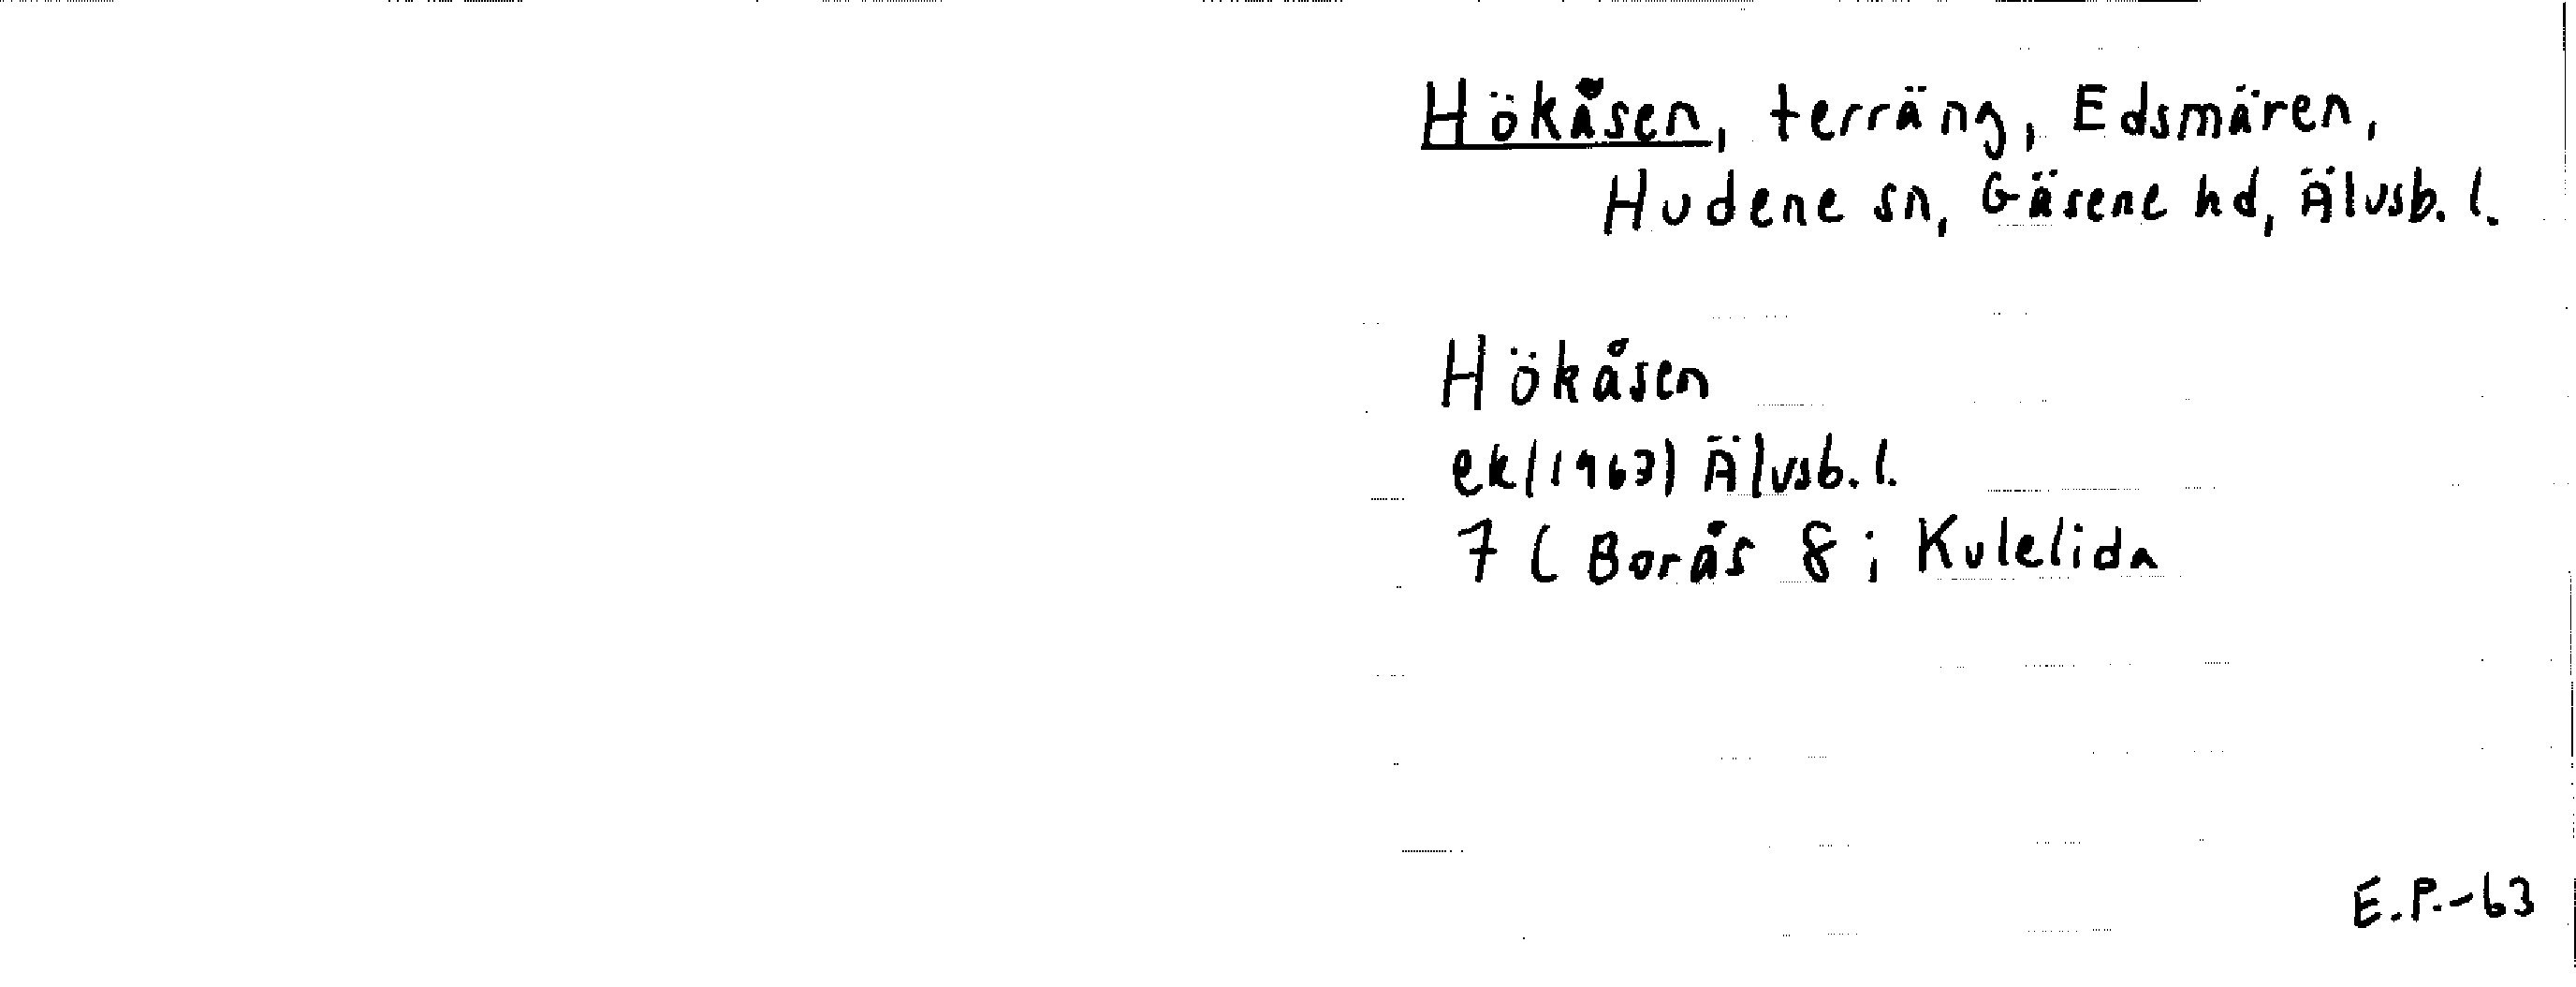 Hökåsen, terräng, Edsmären,
Hudene sn, Gäsene hd, Älvsb. l.
Hökåsen
ek(1963) Älvsb. l.
7 ( Borås 8 ; Kulelida
E.P.-63